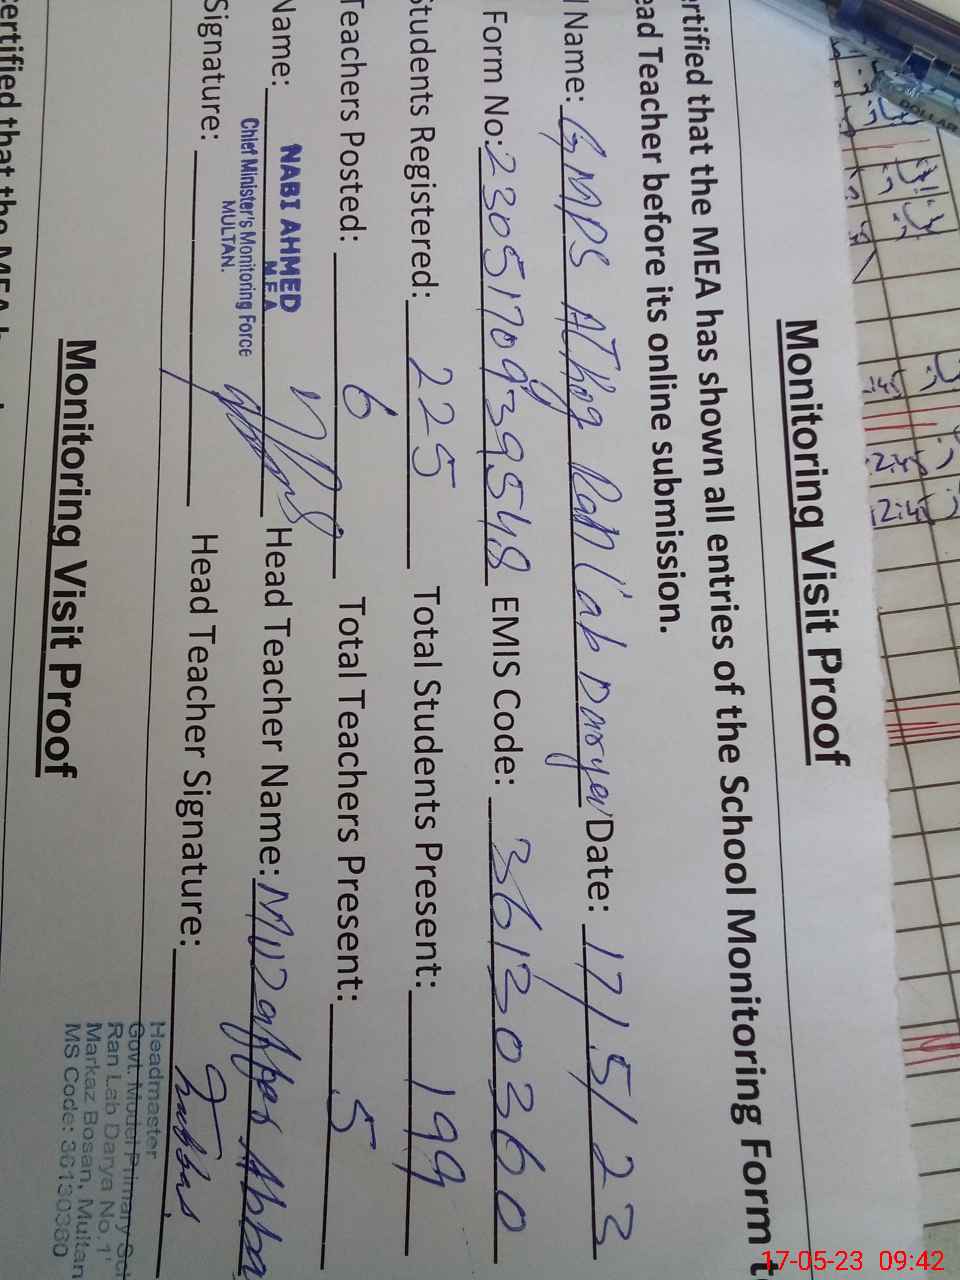 Monitoring Visit Proof
ertified that the MEA has shown all entries of the School Monitoring Form t
ead Teacher before its online submission.
l Name: GMPS Date: 17/5/23
Form No: 2305170939548 EMIS Code: 36130360
Students Registered: 225 Total Students Present: 199
Teachers Posted: 6 Total Teachers Present: 5
Name: Head Teacher Name: Muzaffar Abba
NABI AHMED
M.E.A
Chief Minister's Monitoring Force
MULTAN.
Signature: Head Teacher Signature:
Headmaster
Govt. Model Primary Scl
Ran Lab Darya No.1'
Markaz Bosan, Multan
MS Code: 36130360
Monitoring Visit Proof
ertified that the MEA h
DOLLAR
12:45
17-05-23 09:42